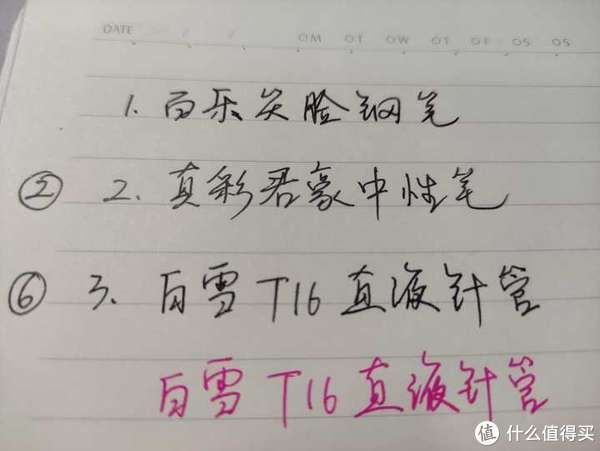 DATE / / OM OT OW OT OF OS OS
1. 百乐笑脸钢笔
② 2. 真彩君豪中性笔
⑥ 3. 白雪T16直液针管
白雪T16直液针管
值 什么值得买